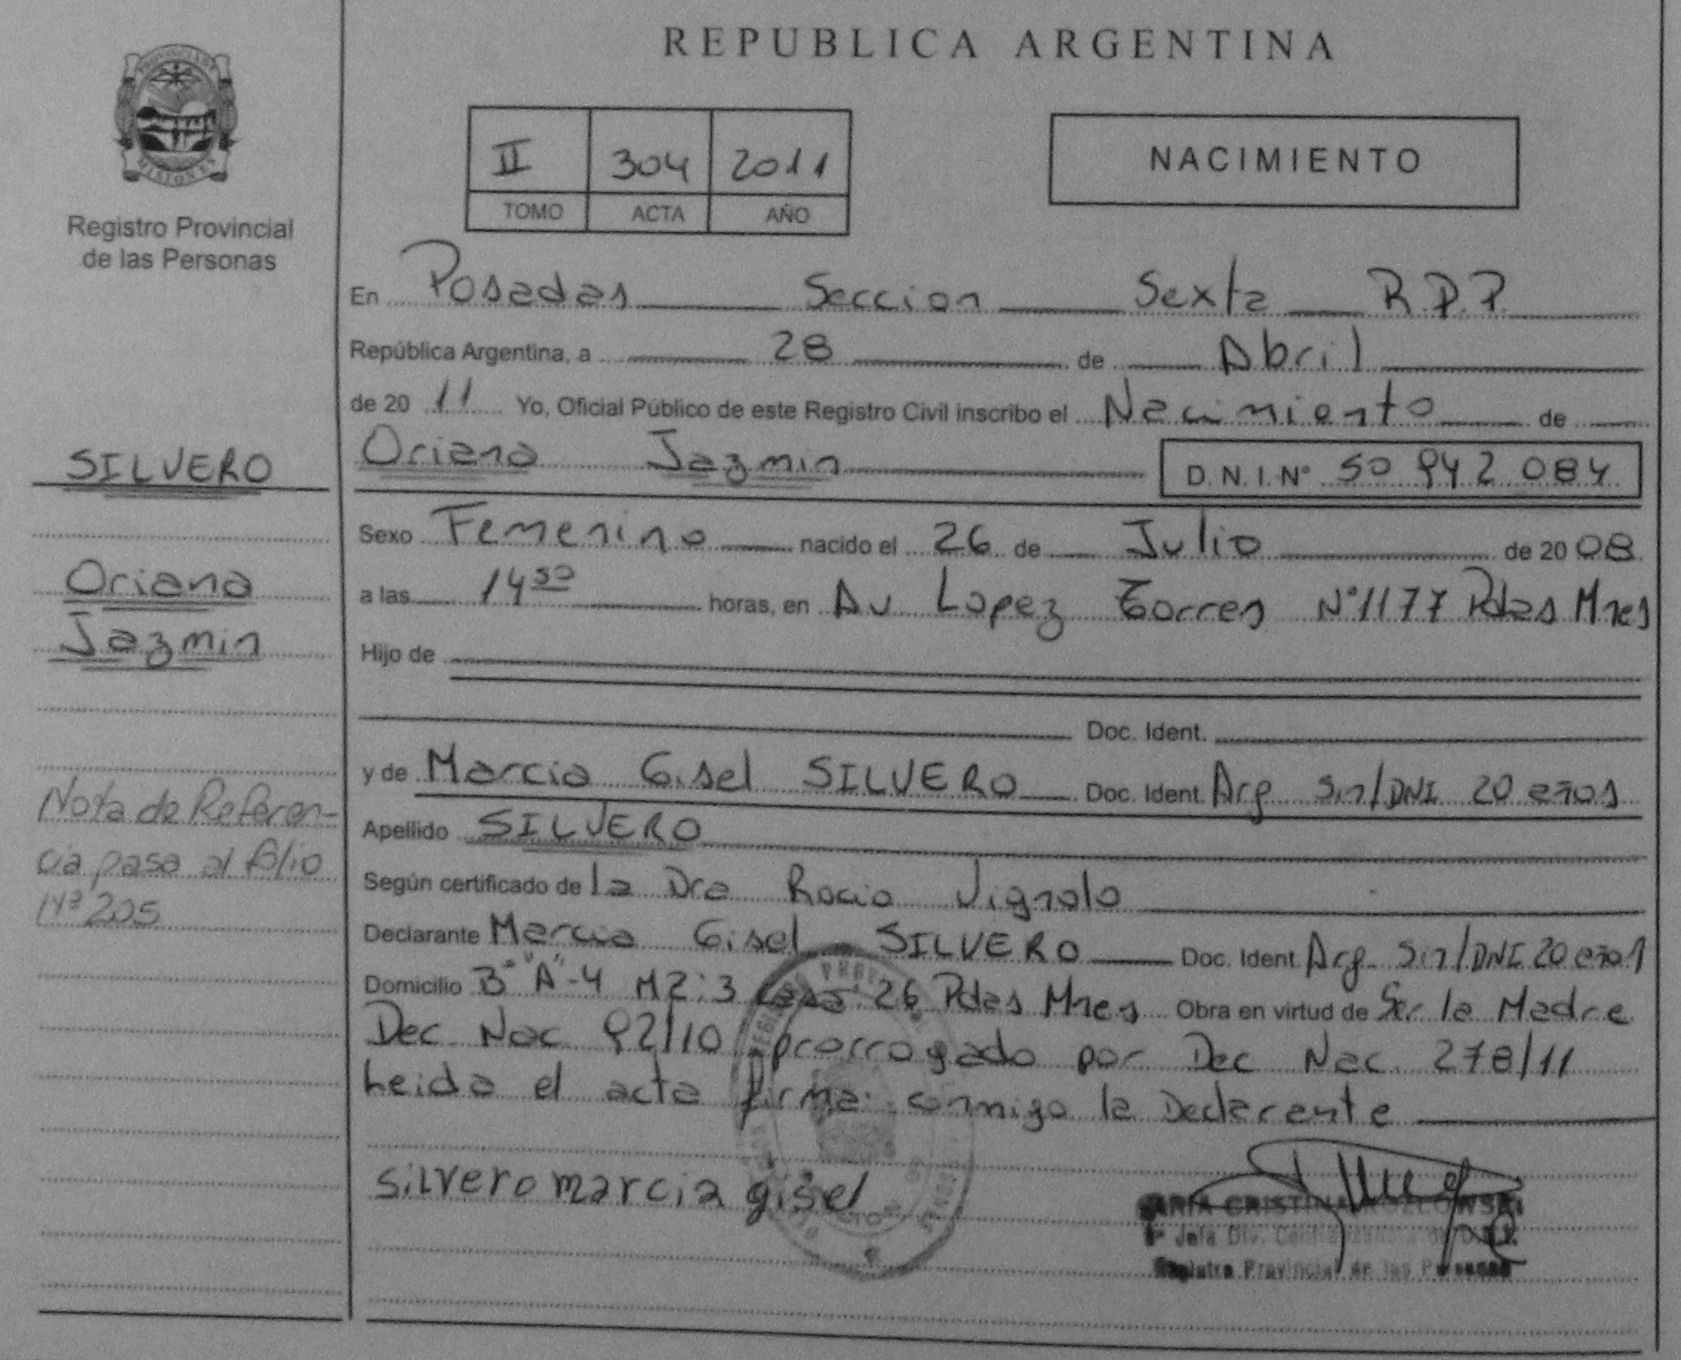 REPUBLICA ARGENTINA
PROVINCIA DE
MISIONES
Registro Provincial
de las Personas
II 304 2011
TOMO ACTA AÑO
NACIMIENTO
En Posadas Seccion Sexta R.P.P.
República Argentina, a 28 de Abril
de 20 11 Yo, Oficial Público de este Registro Civil inscribo el Nacimiento de
SILVERO
Oriana Jazmin D.N.I. Nº 50 942 084
Sexo Femenino nacido el 26 de Julio de 20 08
Oriana
Jazmin
a las 14 50 horas, en Av Lopez Torres Nº 1177 Pdas Mnes
Hijo de
Doc. Ident.
y de Marcia Gisel SILVERO Doc. Ident. Arg Sin/DNI 20 años
Nota de Referen-
cia pasa al folio
Nº 205
Apellido SILVERO
Según certificado de la Dra Rocio Vignolo
Declarante Marcia Gisel SILVERO Doc. Ident. Arg. Sin/DNI 20 años
Domicilio Bº "A"-4 MZ:3 Casa 26 Pdas Mnes Obra en virtud de Ser la Madre
Dec Nac 92/10 prorrogado por Dec Nac. 278/11
Leida el acta firma conmigo la Declarante
silvero marcia gisel
MARIA CRISTINA KOZLOWSKI
Jefa Div.
Registro Provincial de las Personas